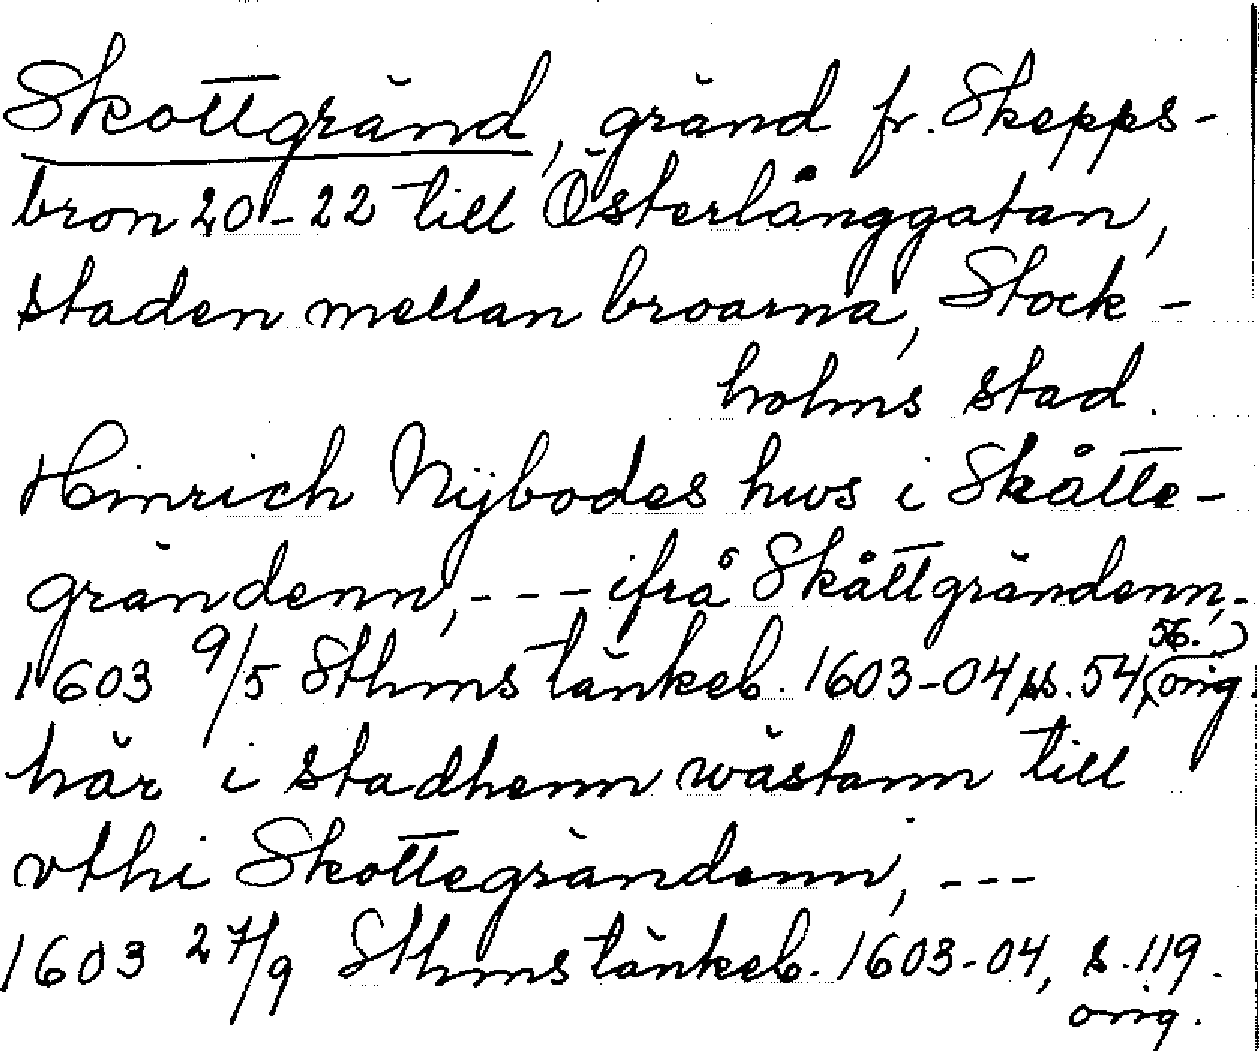 Skottgränd, gränd fr. Skepps-
bron 20-22 till Österlånggatan,
staden mellan broarna, Stock-
holms stad.
Hinrich Nÿbodes hws i Skåtte-
grändenn, --- ifrå Skåttgrändenn,-
1603 9/5 Sthms tänkeb. 1603-04, s. 54, 56. (orig.)
här i stadhenn wästann till
vthi Skottegrändenn, ---
1603 27/9 Sthms tänkeb. 1603-04, s. 119.
orig.